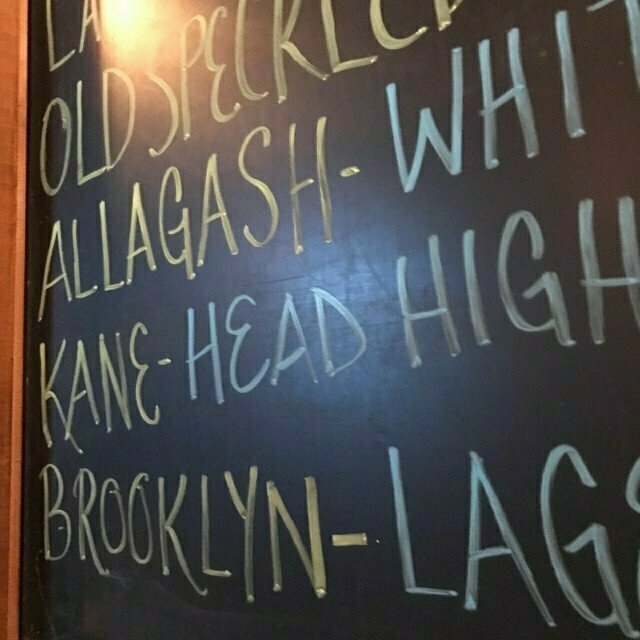 LA
OLD SPECKLED
ALLAGASH - WHIT
KANE - HEAD HIGH
BROOKLYN - LAG